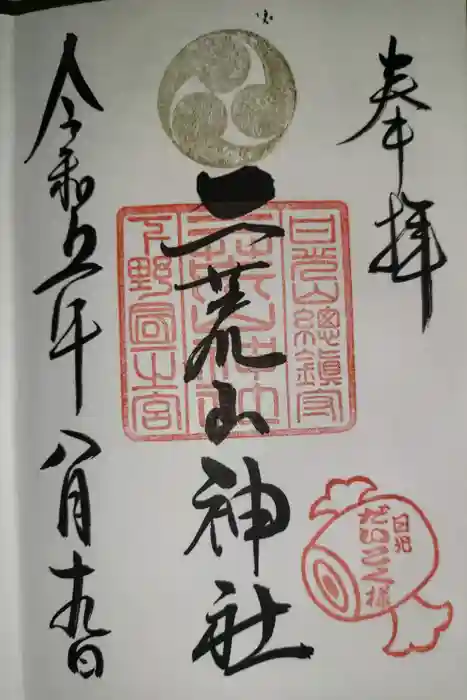 奉拝
日光山総鎮守
二荒山神社
下野国一宮
日光
だいこく様
令和五年八月十九日